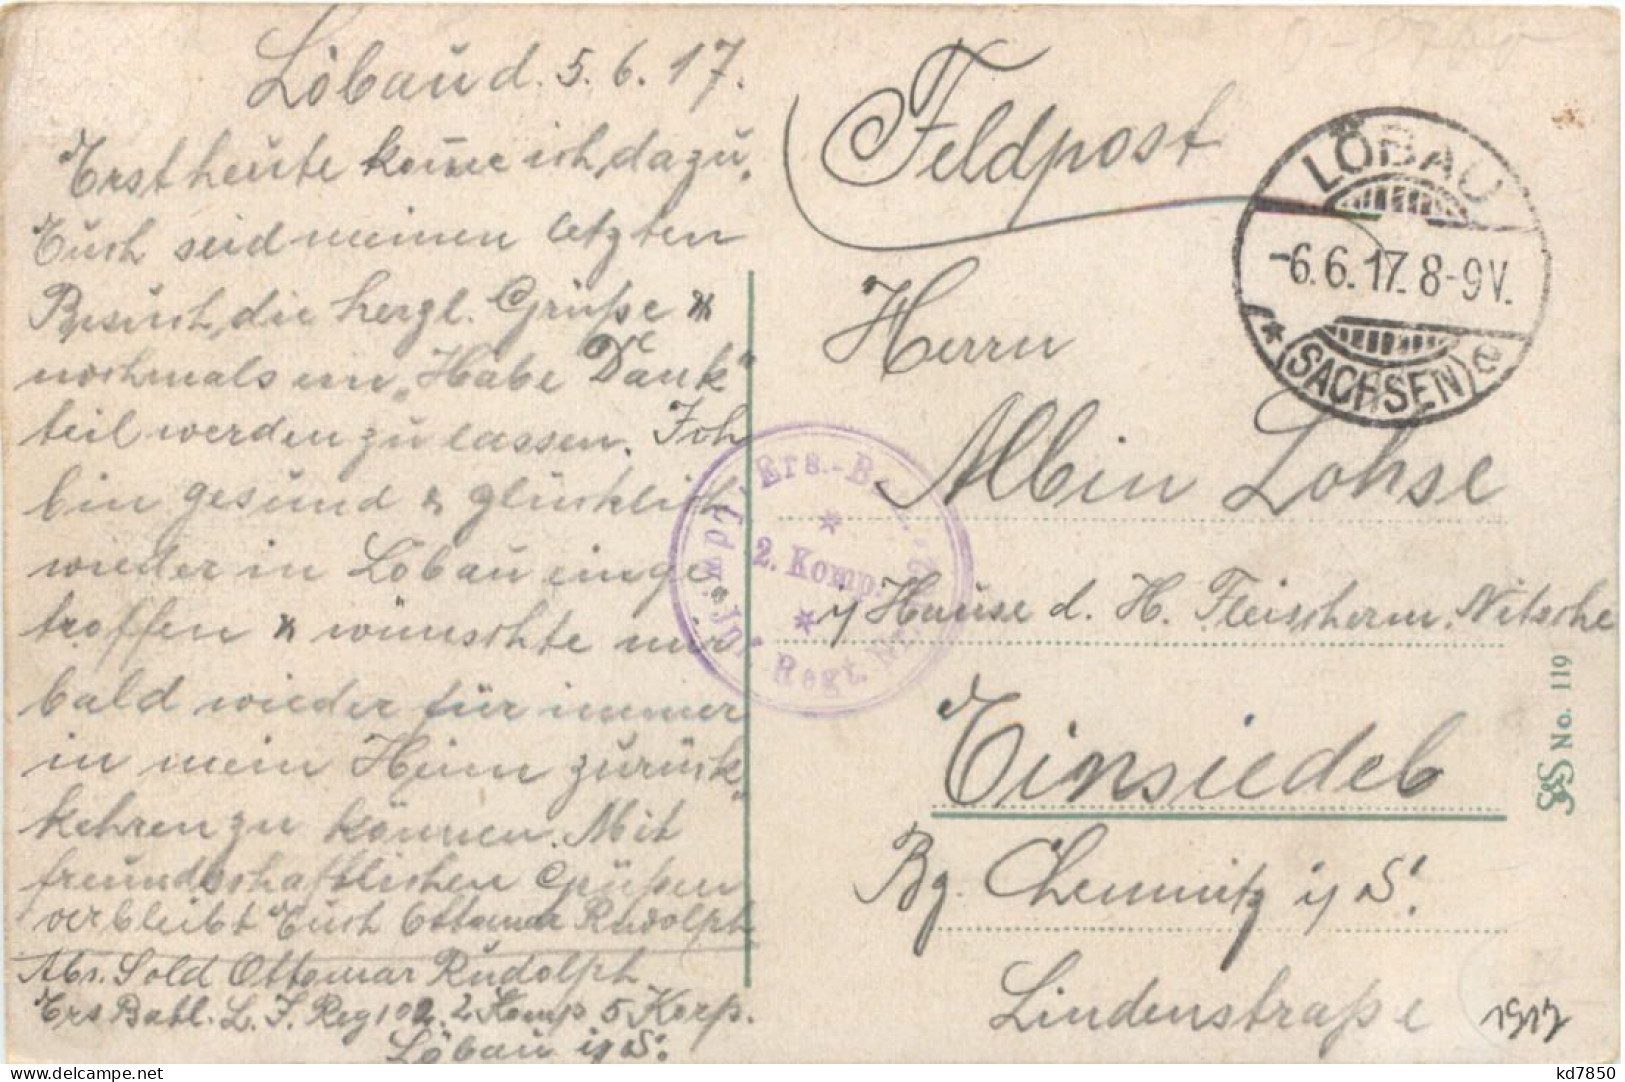 Löbau d. 5.6.17.
Erst heute komme ich dazu,
Euch seid meinen letzten
Besuch, die herzl. Grüße &
nochmals ein „Habe Dank“
teil werden zu lassen. Ich
bin gesund & glücklich
wieder in Löbau einge„
troffen & wünschte nur
bald wieder für immer
in mein Heim zurück„
kehren zu können. Mit
freundschaftlichen Grüßen
verbleibt Euch Ottomar Rudolph
Abs. Sold Ottomar Rudolph
Ers Batl. L. I. Reg 102. 2 Komp 5 Korp.
Löbau i/S.
Feldpost
LÖBAU
-6.6.17. 8-9V.
* (SACHSEN) e
Herrn
Albin Lohse
i/ Hause d. H. Fleischerm. Nitsche
Einsiedel
Bz. Chemnitz i/S.
Lindenstraße
Ers.-B
2. Komp.
Inf. Regt. Nr.
SS No. 119
1917
www.delcampe.net
kd7850